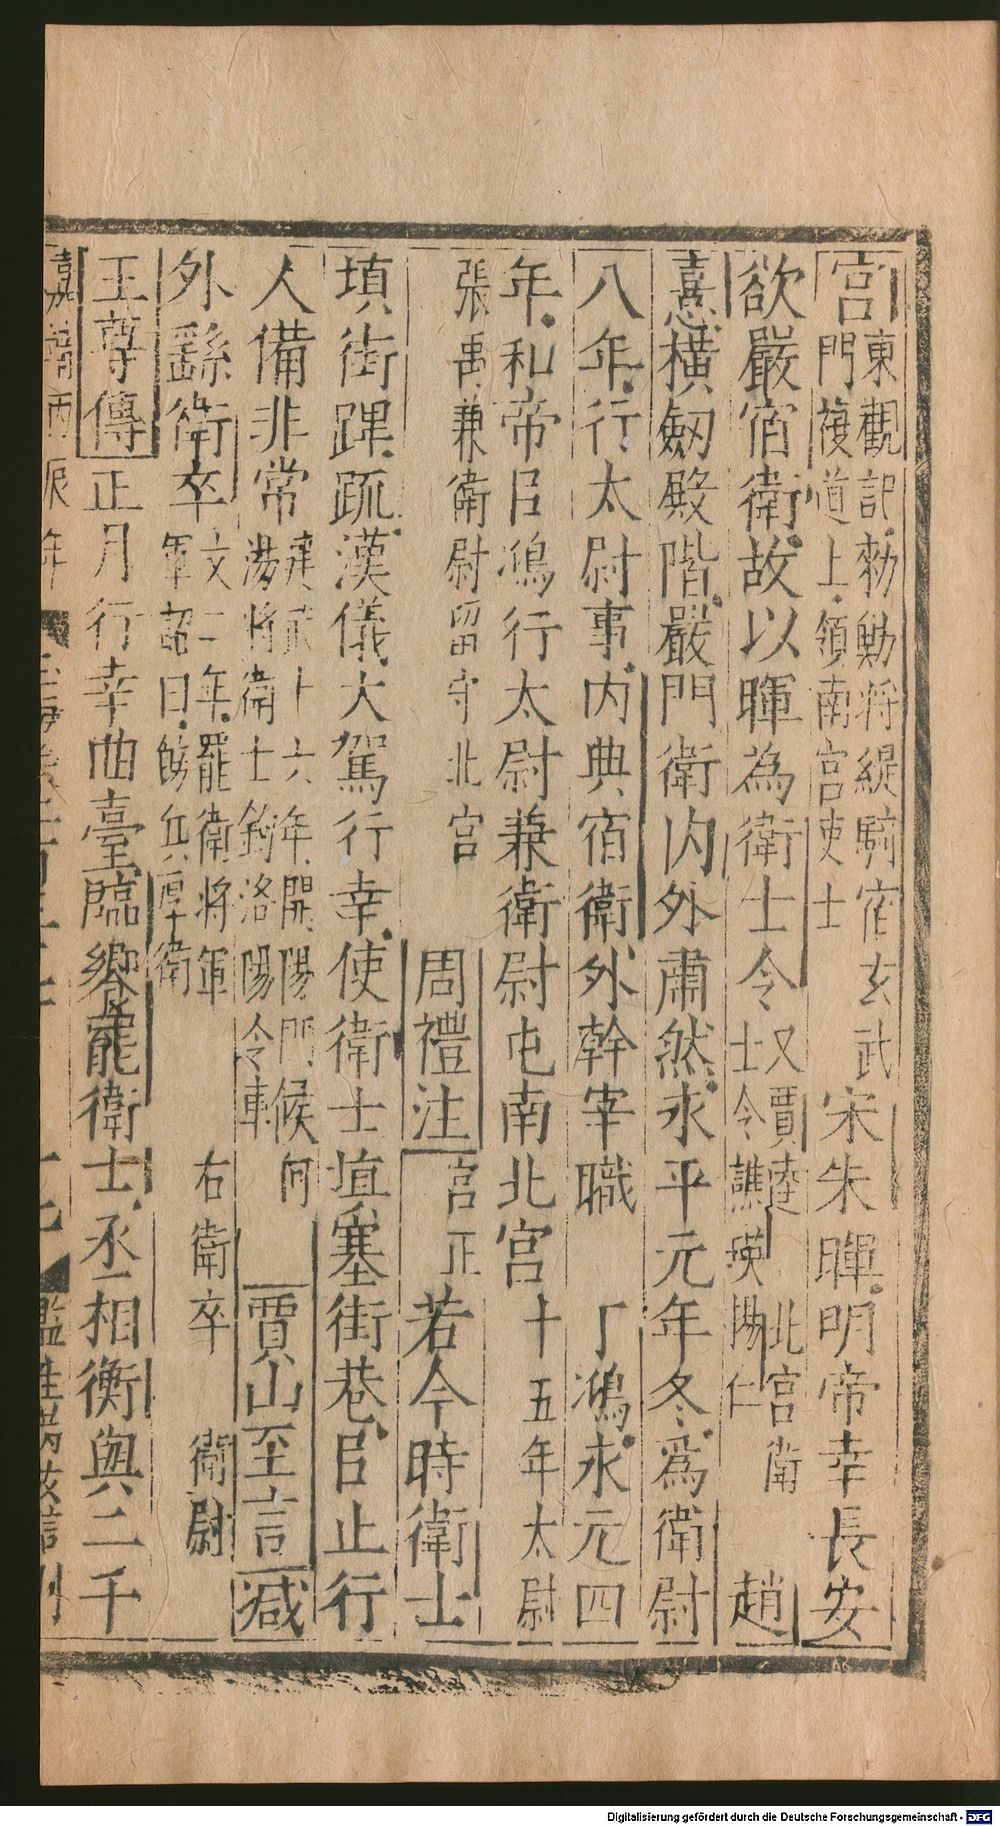 宮東觀記勑勳將緹騎宿玄武門複道上領南宮吏士宋朱暉明帝幸長安
欲嚴宿衛故以暉為衛士令又賈逵士令譙瑛北宮衛陽仁趙
憙橫劒殿階嚴門衛內外肅然永平元年冬爲衛尉
八年行太尉事內典宿衛外幹宰職丁鴻永元四
年和帝㠯鴻行太尉兼衛尉屯南北宮十五年太尉
張禹兼衛尉留守北宮周禮注宮正若今時衛士
填街蹕䟽漢儀大駕行幸使衛士填塞街巷㠯止行
人備非常建武十六年開陽門候何湯將衛士鉤洛陽令車賈山至言減
外繇衛卒文二年罷衛將軍軍詔曰飭兵厚衛右衛卒衛尉
王尊傳正月行幸曲臺臨饗罷衛士丞相衡與二千
嘉靖丙辰年 監生
Digitalisierung gefördert durch die Deutsche Forschungsgemeinschaft - DFG